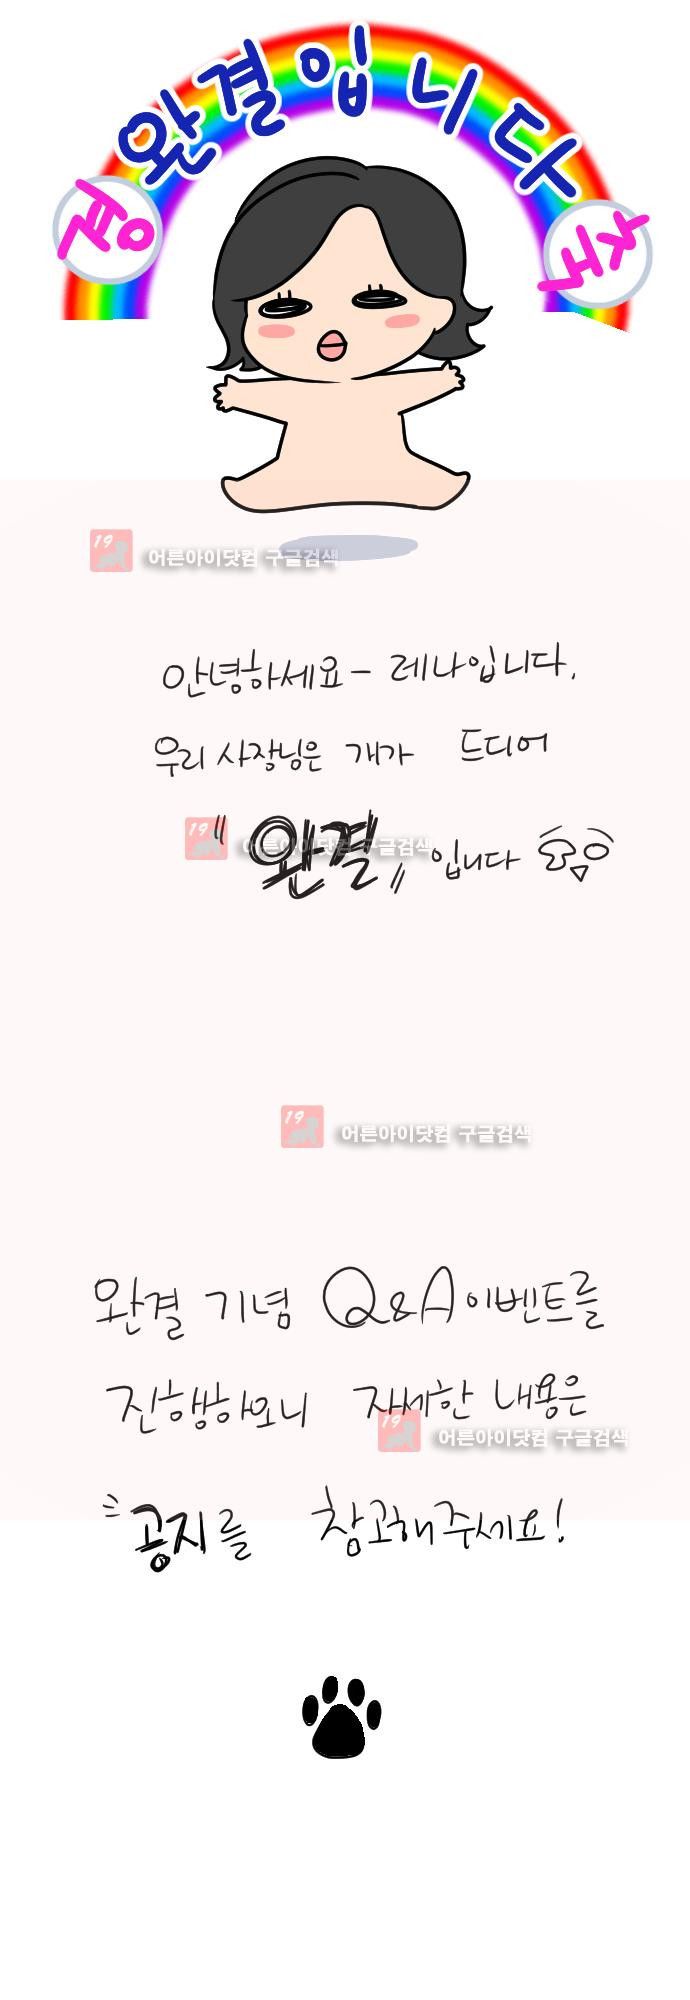 완결입니다
경
축
19 어른아이닷컴 구글검색
안녕하세요- 레나입니다.
우리 사장님은 개가 드디어
"완결" 입니다
19 어른아이닷컴 구글검색
19 어른아이닷컴 구글검색
완결 기념 Q&A 이벤트를
진행하오니 자세한 내용은
19 어른아이닷컴 구글검색
공지를 참고해주세요!